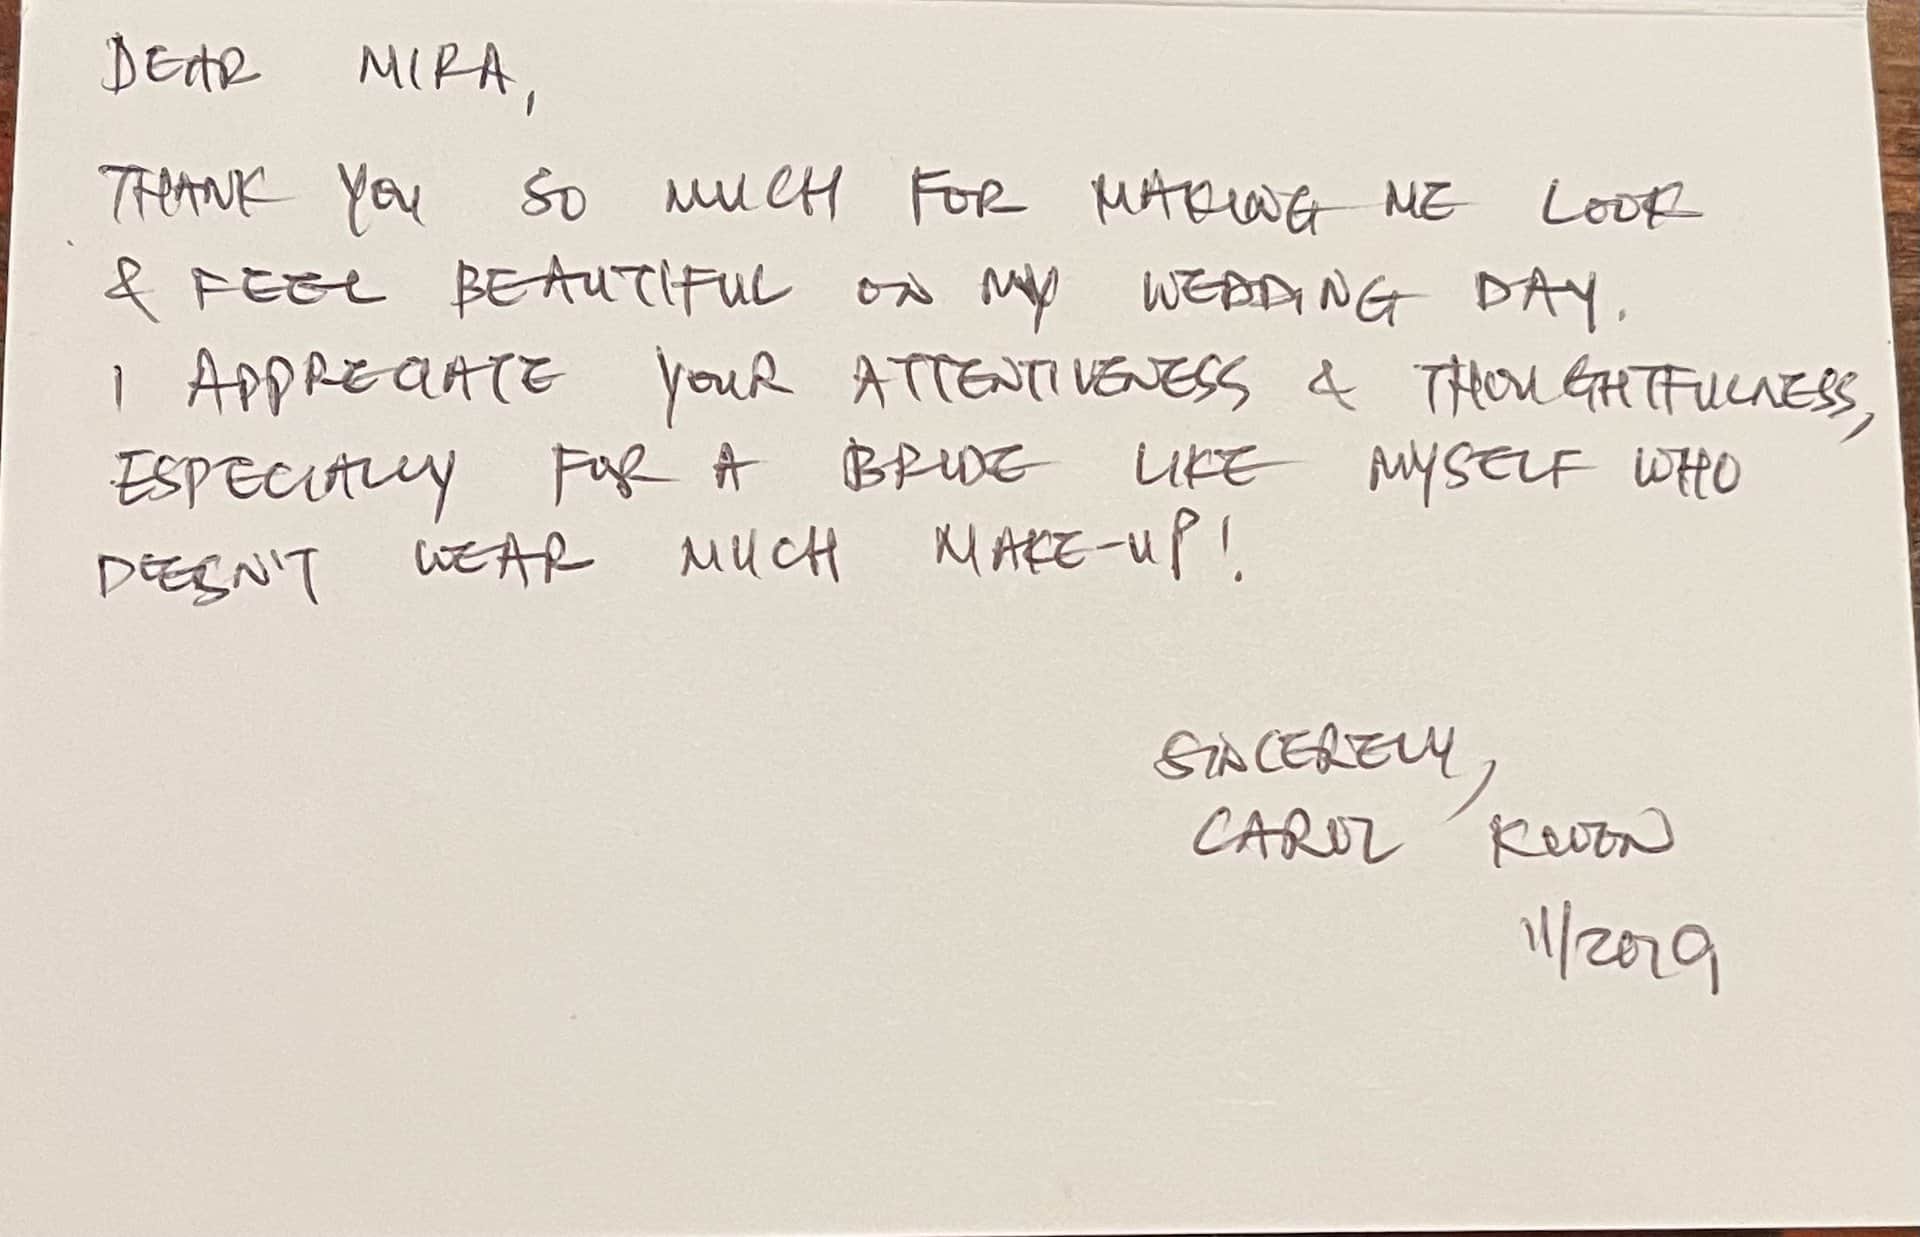 DEAR MIRA,
THANK YOU SO MUCH FOR MAKING ME LOOK
& FEEL BEAUTIFUL ON MY WEDDING DAY.
I APPRECIATE YOUR ATTENTIVENESS & THOUGHTFULNESS,
ESPECIALLY FOR A BRIDE LIKE MYSELF WHO
DOESN'T WEAR MUCH MAKE-UP!
SINCERELY,
CAROL KWON
11/2019